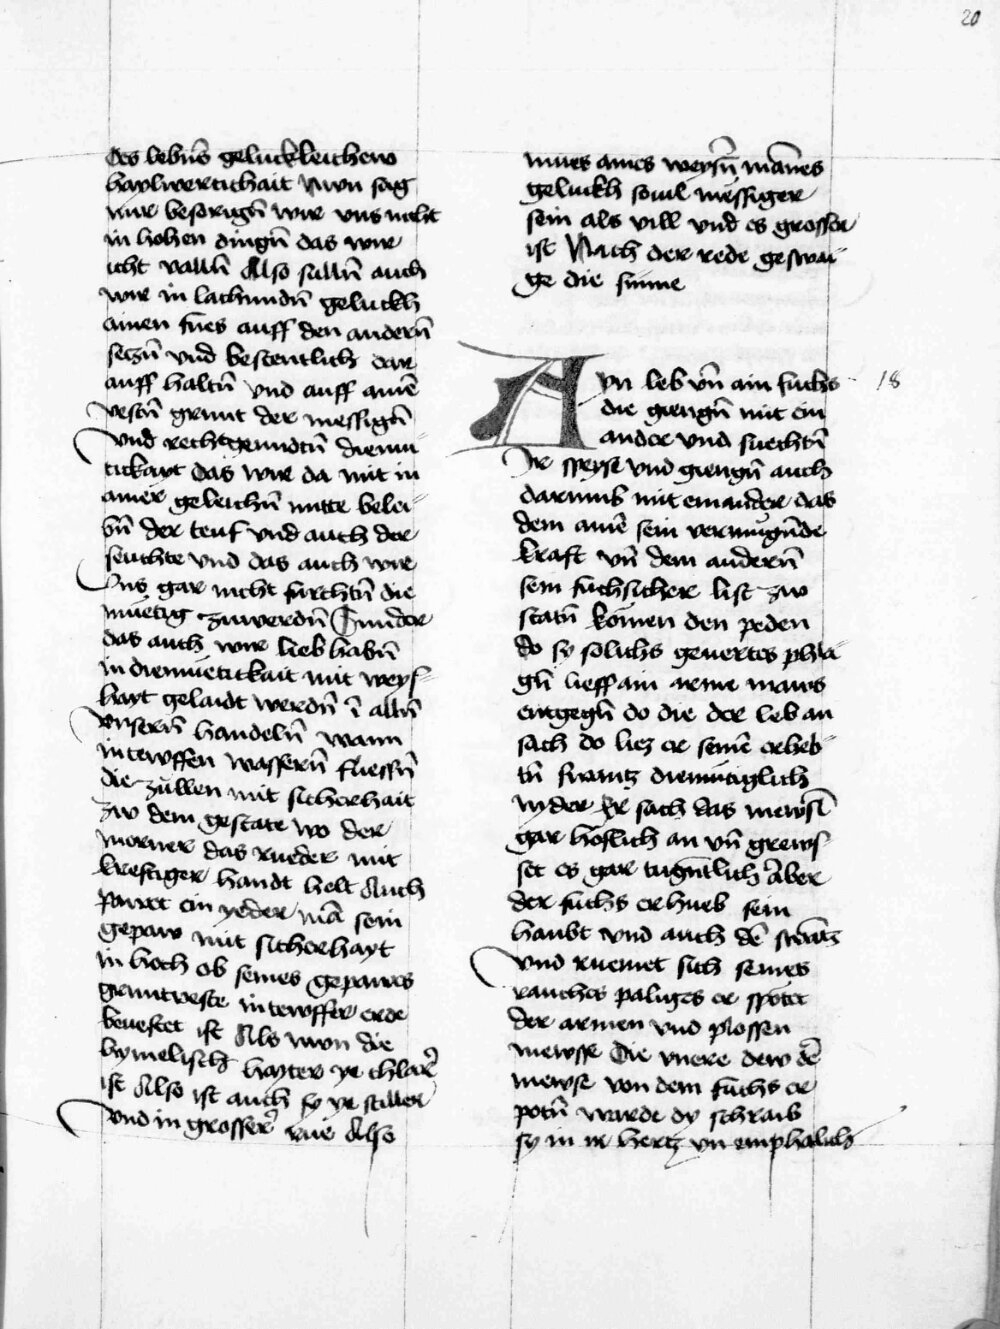 20
Des lebñs geluckleichew
haylwertichait Nwn sag
mir besorigñ wir vns nicht
in hohen dingñ das wir
icht vallñ Also sullñ auch
wir in lachundñ geluckh
ainen fues auff den anderñ
seczñ vnd bestentlich dar
auff haltñ vnd auff ainē
vestñ grunt der messigñ
vnd rechtgemutñ diemu
tickayt das wir da mit in
ainer geleichñ mitte belei
bñ der teuf vnd auch der
seuchte vnd das auch wir
vns gar nicht furchtñ die
muetig zuwerdñ Sunder
das auch wir lieb habñ
in diemuetickait mit weys
hayt gelaidt werdñ ī allñ
vnserñ handelñ wann
in tewffen wasserñ fliessñ
die zullen mit sicherhait
zw dem gestate wo der
morner das rueder mit
kreftiger handt helt Auch
pawet ein yeder mā sein
gepaw mit sicherhayt
in hoch ob seines gepawes
gruntveste in tewffer erde
beuestet ist Als nwn die
hymelisch hayter ye chlarer
ist Also ist auch sy ye stiller
vnd in grosser rue Also
mues aines weysñ mānes
geluckh souil messiger
sein als vill vnd es grosser
ist Nach der rede geswai
ge die sinne
Ayn leb vñ ain fuchs 18
die giengñ mit ein
ander vnd suechtñ
Ir speyse vnd giengñ auch
darumb mit einander das
dem ainē sein vermugñde
kraft vñ dem anderñ
sein fuchsicher list zw
statñ komen den peden
do sy solichs geuertes phla
gñ lieff ain arme maws
entgegñ do die der leb an
sach do liez er seinē erheb
tñ swantz diemutiglich
nyder Er sach das mewsl
gar hoflich an vñ grews
set es gar tugñtlich Aber
der fuchs erhueb sein
haubt vnd auch dē swātz
vnd ruemet sich seines
rauches palliges er spotet
der armen vnd plossen
mewsse Die vnere dew dē
mewse von dem fuchs er
potñ warde dy schraib
sy in ir hertz vn emphalich